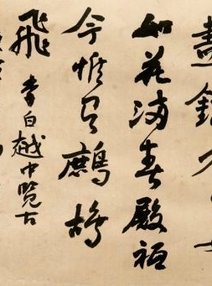 盡錦
如花滿春殿祗
今惟有鷓鴣
飛 李白越中覽古